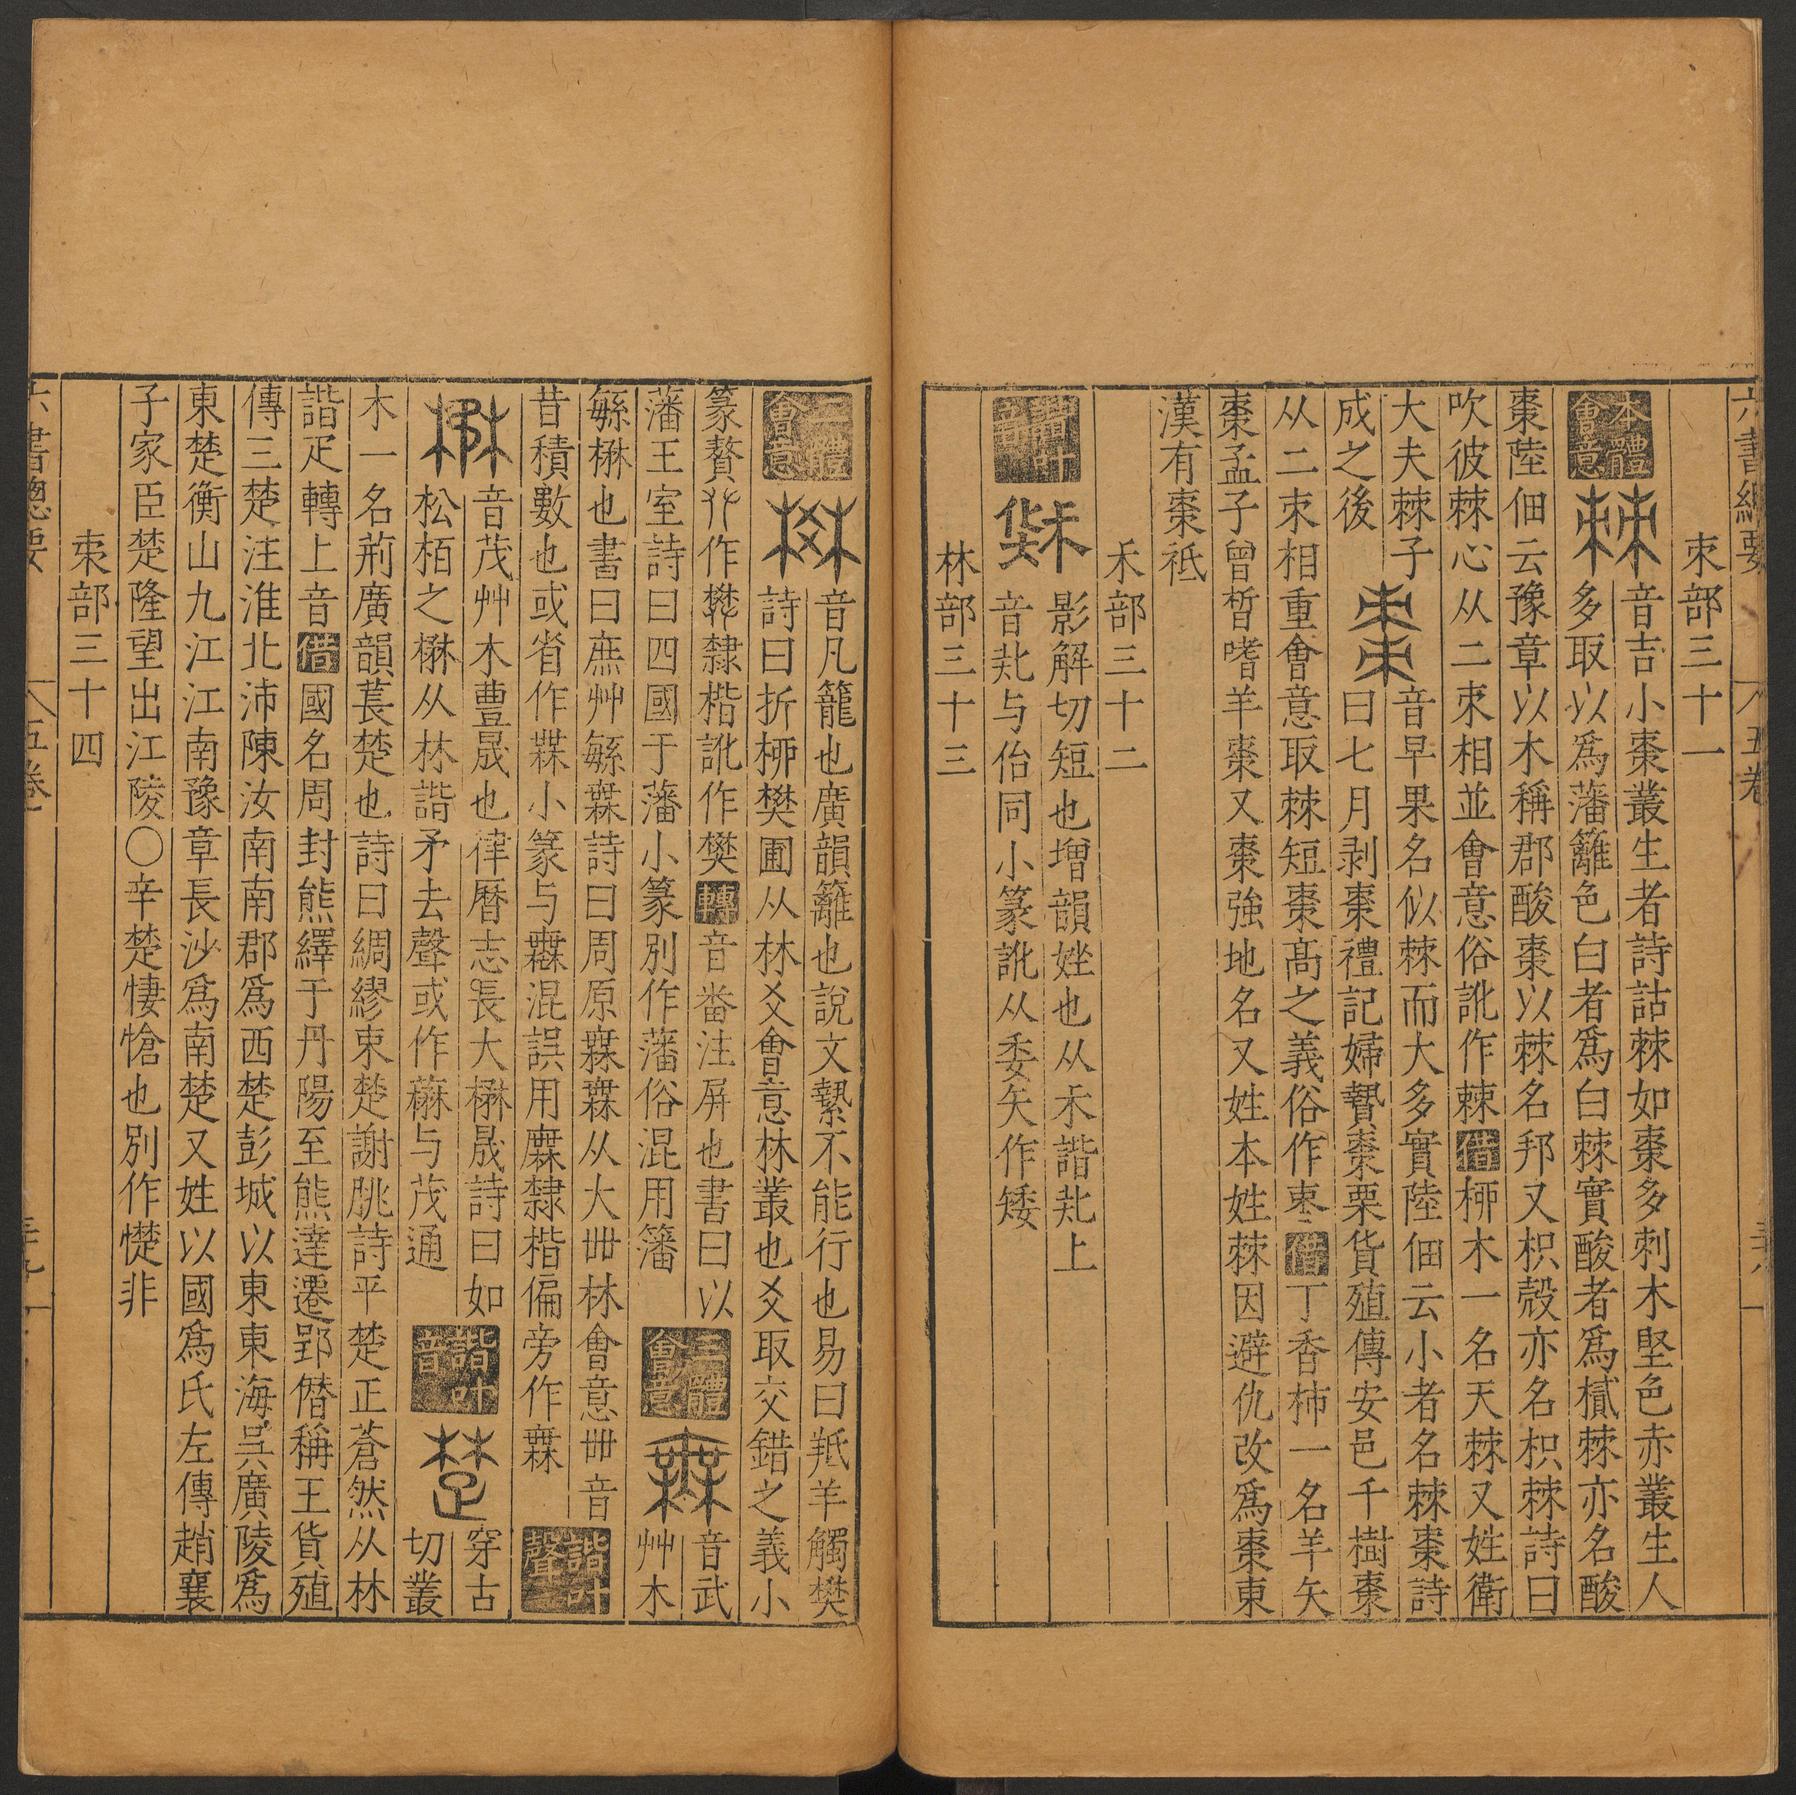 六書總要 五卷
朿部三十一
本體會意 棘 音吉小棗叢生者詩詁棘如棗多刺木堅色赤叢生人
多取以爲藩籬色白者爲白棘實酸者爲樲棘亦名酸
棗陸佃云豫章以木稱郡酸棗以棘名邦又枳殼亦名枳棘詩曰
吹彼棘心从二朿相並會意俗訛作棘借桺木一名天棘又姓衛
大夫棘子
成之後 棗 音早果名似棘而大多實陸佃云小者名棘棗詩
曰七月剥棗禮記婦贄棗栗貨殖傳安邑千樹棗
从二朿相重會意取棘短棗高之義俗作枣借丁香柿一名羊矢
棗孟子曾晳嗜羊棗又棗強地名又姓本姓棘因避仇改爲棗東
漢有棗祗
禾部三十二
諧叶音 影解切短也增韻矬也从禾諧乩上
音乩与佁同小篆訛从委矢作矮
林部三十三
二體會意 棥 音凡籠也廣韻籬也說文縶不能行也易曰羝羊觸樊
詩曰折桺樊圃从林爻會意林叢也爻取交錯之義小
篆贅𠬜作樊隸楷訛作樊轉音畨注屏也書曰以
藩王室詩曰四國于藩小篆別作藩俗混用籓
三體會意 橆 音武
艸木
緐楙也書曰庶艸緐橆詩曰周原橆橆从大卌林會意卌音
昔積數也或省作橆小篆与橆混誤用橆隸楷偏旁作橆
諧叶聲 楙 音茂艸木豊晟也律曆志長大楙晟詩曰如
松栢之楙从林諧矛去聲或作䋷与茂通
諧叶音 楚 穿古
切叢
木一名荊廣韻萇楚也詩曰綢繆束楚謝脁詩平楚正蒼然从林
諧疋轉上音借國名周封熊繹于丹陽至熊達遷郢僭稱王貨殖
傳三楚注淮北沛陳汝南南郡爲西楚彭城以東東海吳廣陵爲
東楚衡山九江江南豫章長沙爲南楚又姓以國爲氏左傳趙襄
子家臣楚隆望出江陵○辛楚悽愴也別作憷非
朿部三十四
六書總要 五卷